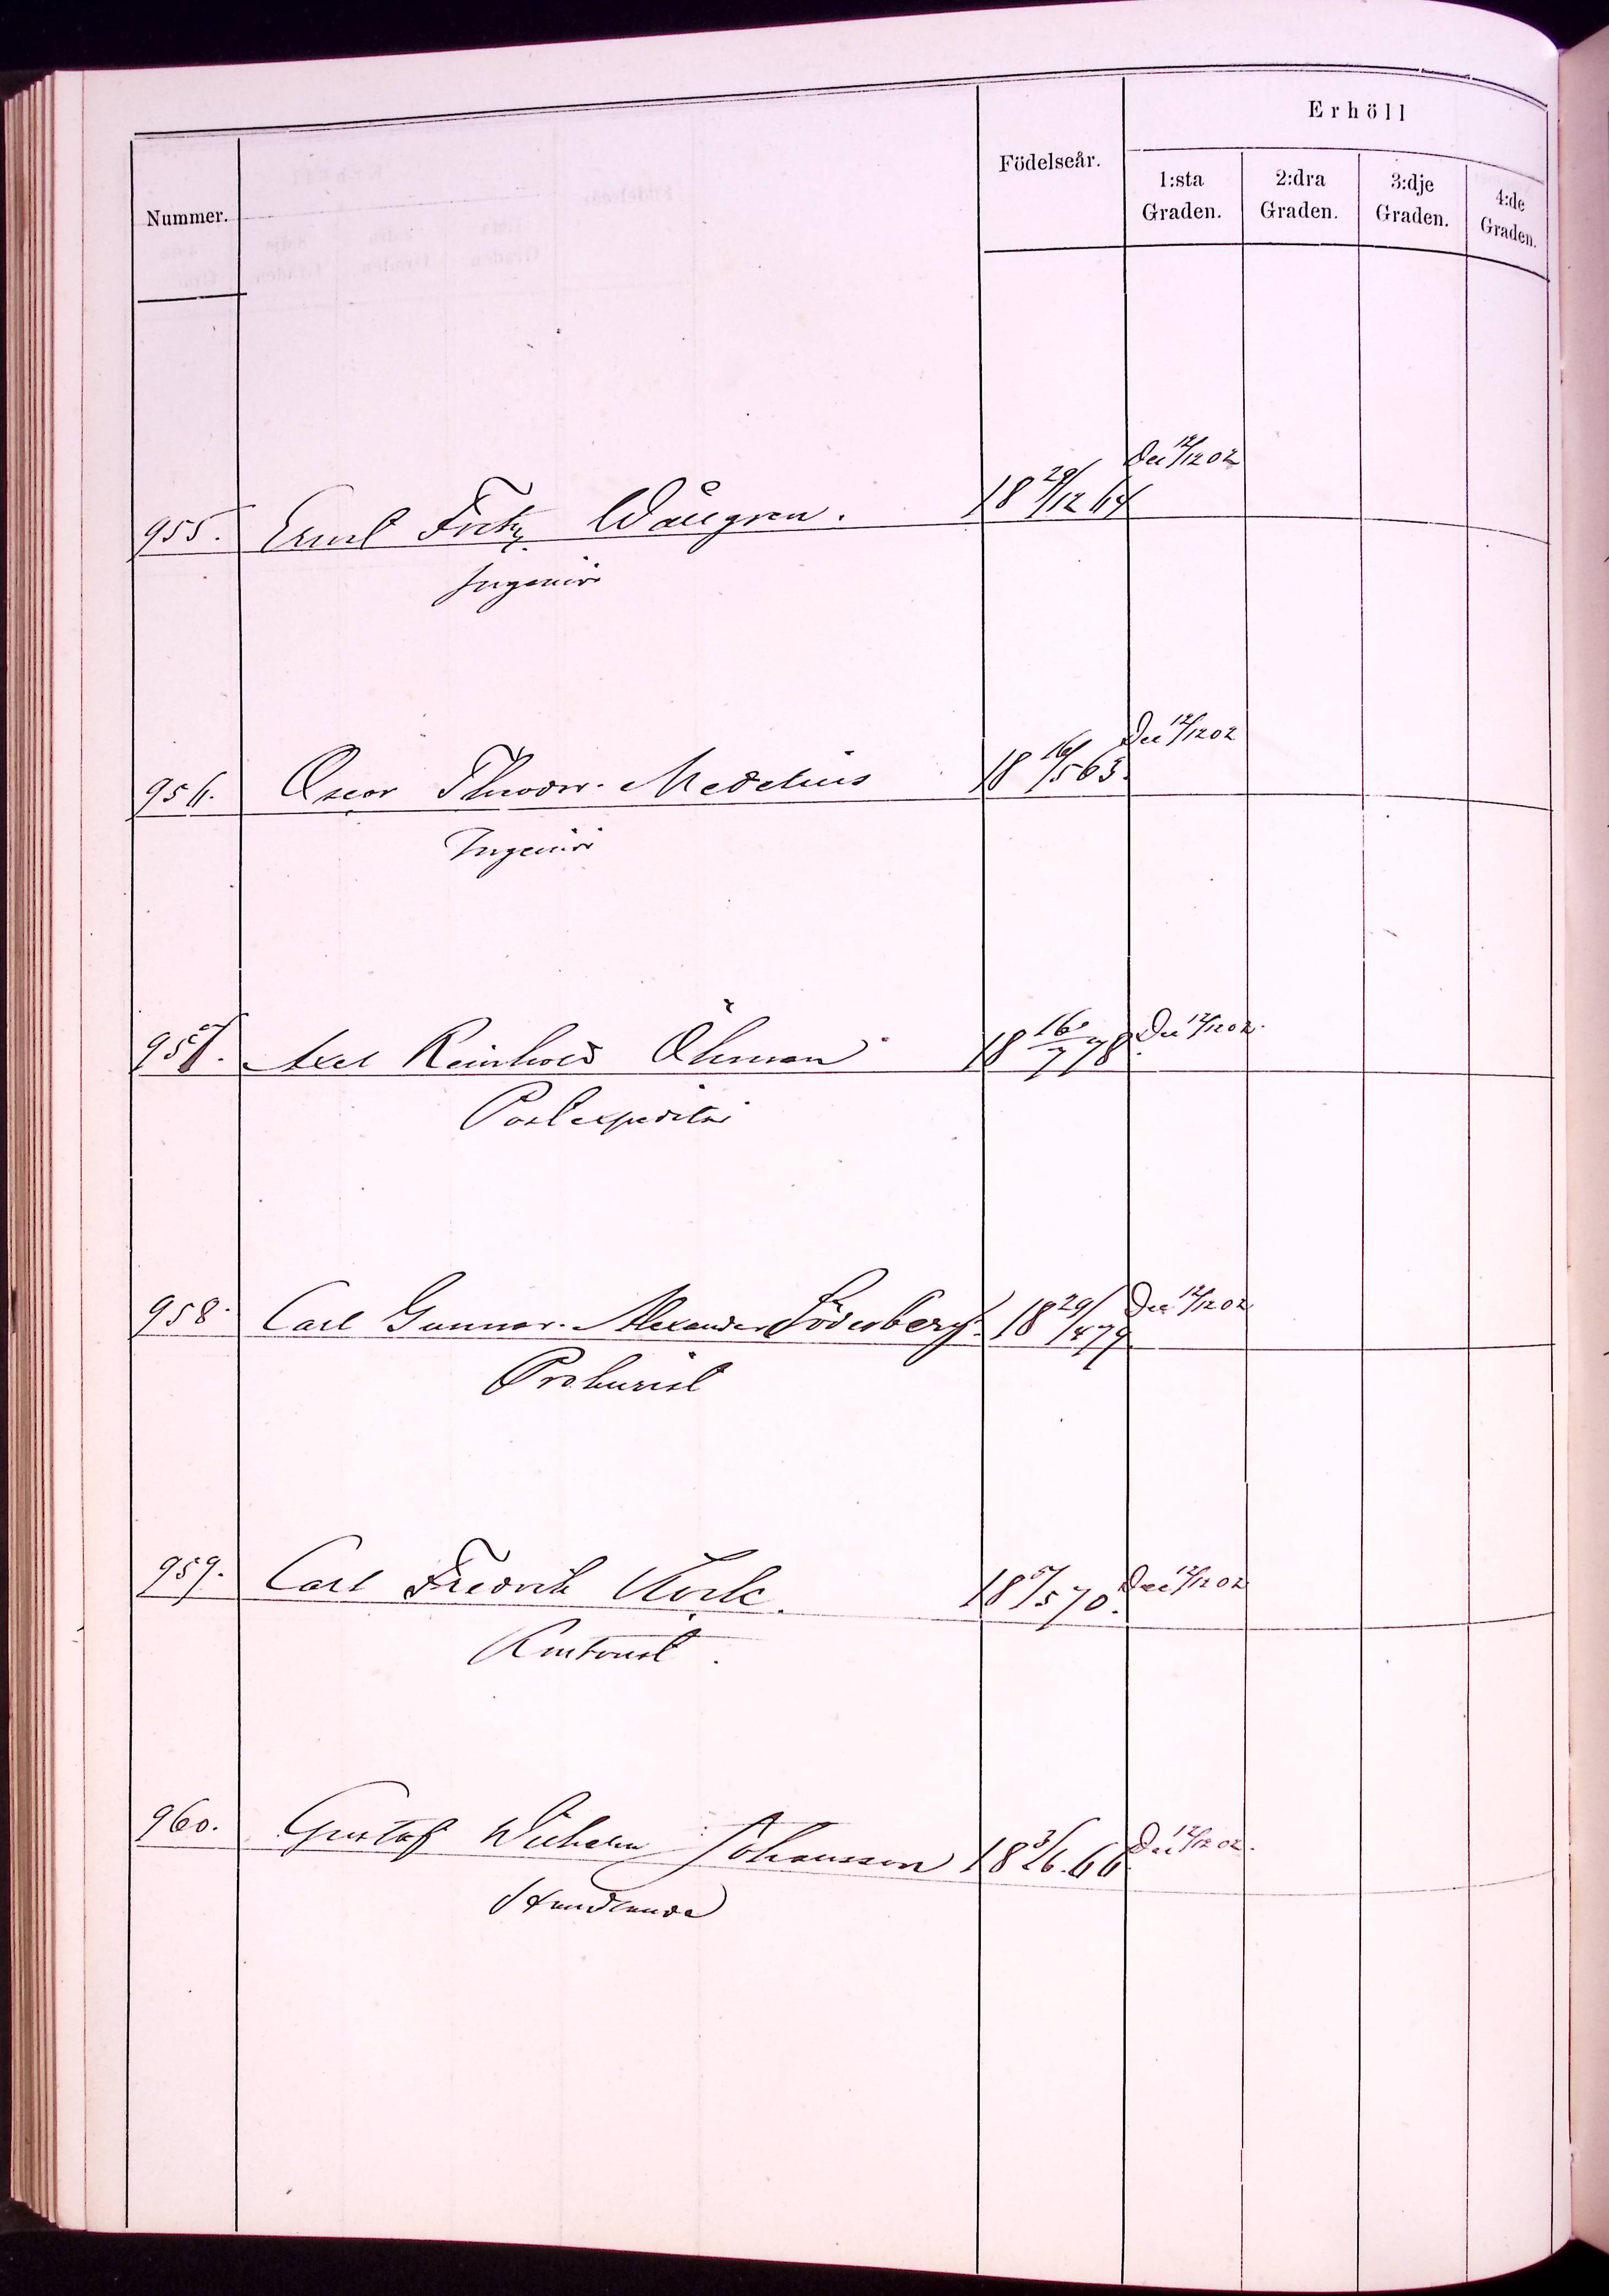 Erhöll
Nummer. Födelseår. 1:sta Graden. 2:dra Graden. 3:dje Graden. 4:de Graden.
Den 12/12 02
955. Ernst Fritz Wållgren. 18 29/12 64
Ingeniör
Den 12/12 02
956. Oscar Theodor Medelius 18 16/5 63.
Ingeniör
957. Axel Reinhold Öhman 18 16/7 78. Den 12/12 02.
Postexpeditör
958. Carl Gunnar Alexander Söderberg. 18 29/ 79. Den 12/12 02
Prokurist
959. Carl Fredrik 18 5/5 70. Den 12/12 02
Kontorist.
960. Gustaf Wilhelm Johansson 18 3/6 66. Den 12/12 02.
Handlande